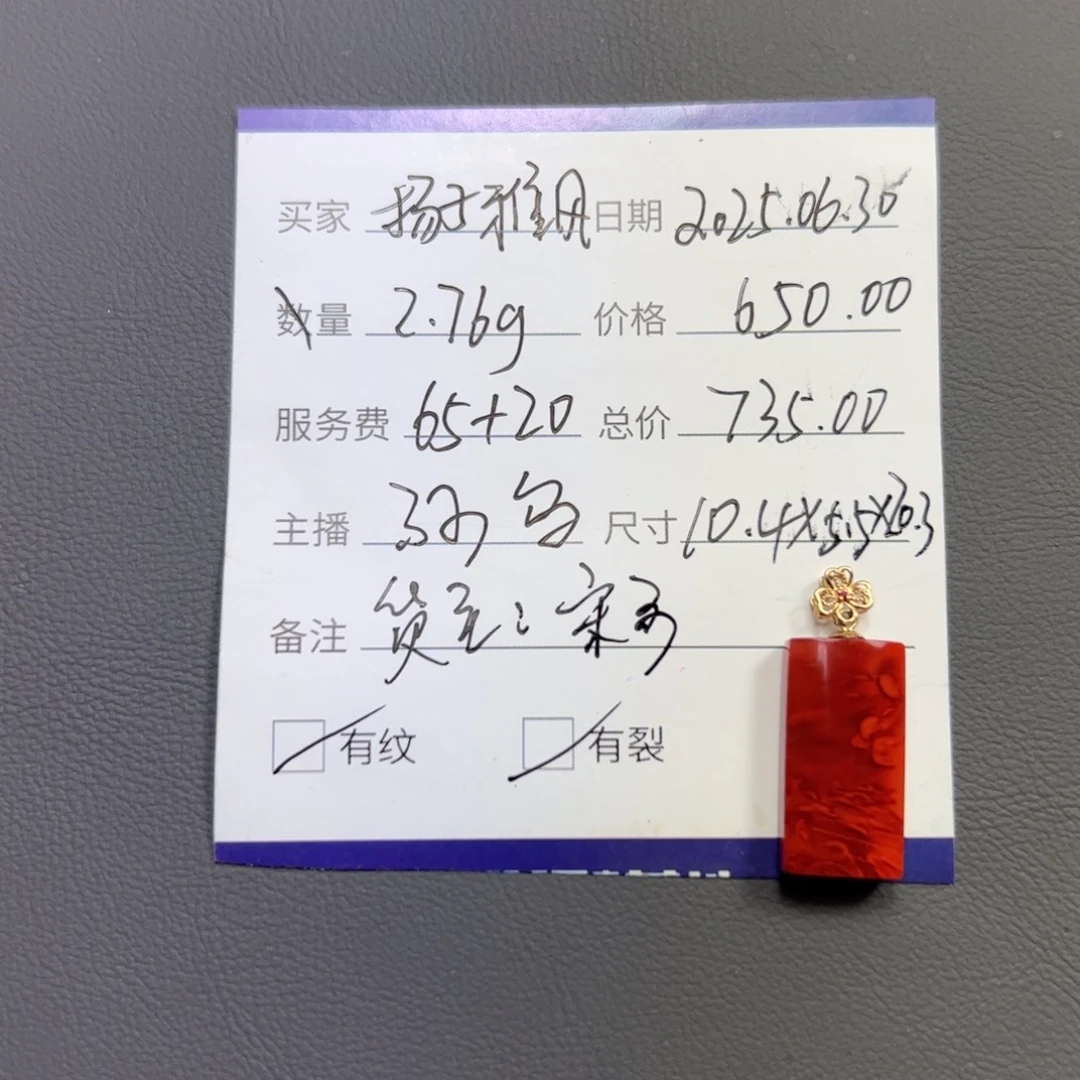 买家 杨士雅丹 日期 2025.06.30
数量 2.76g 价格 650.00
服务费 65+20 总价 735.00
主播 尺寸 10.4×5.5×20.3
备注 货主：宋
有纹 有裂